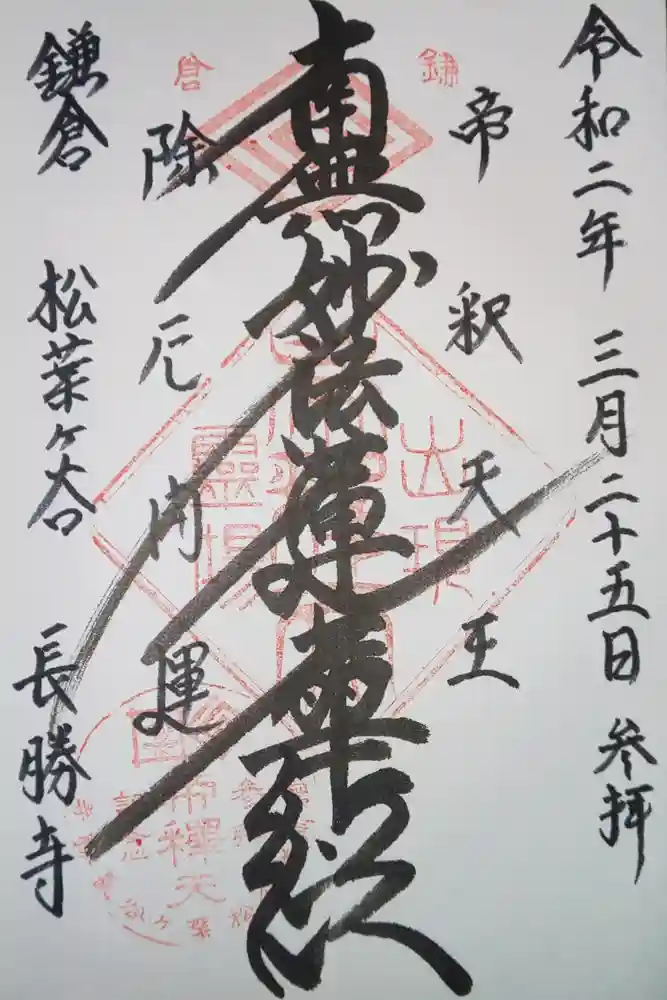 令和二年 三月二十五日 参拝
帝釈天王
南無妙法蓮華経
除厄開運
鎌倉 松葉ヶ谷 長勝寺
鎌
倉
出現
靈場